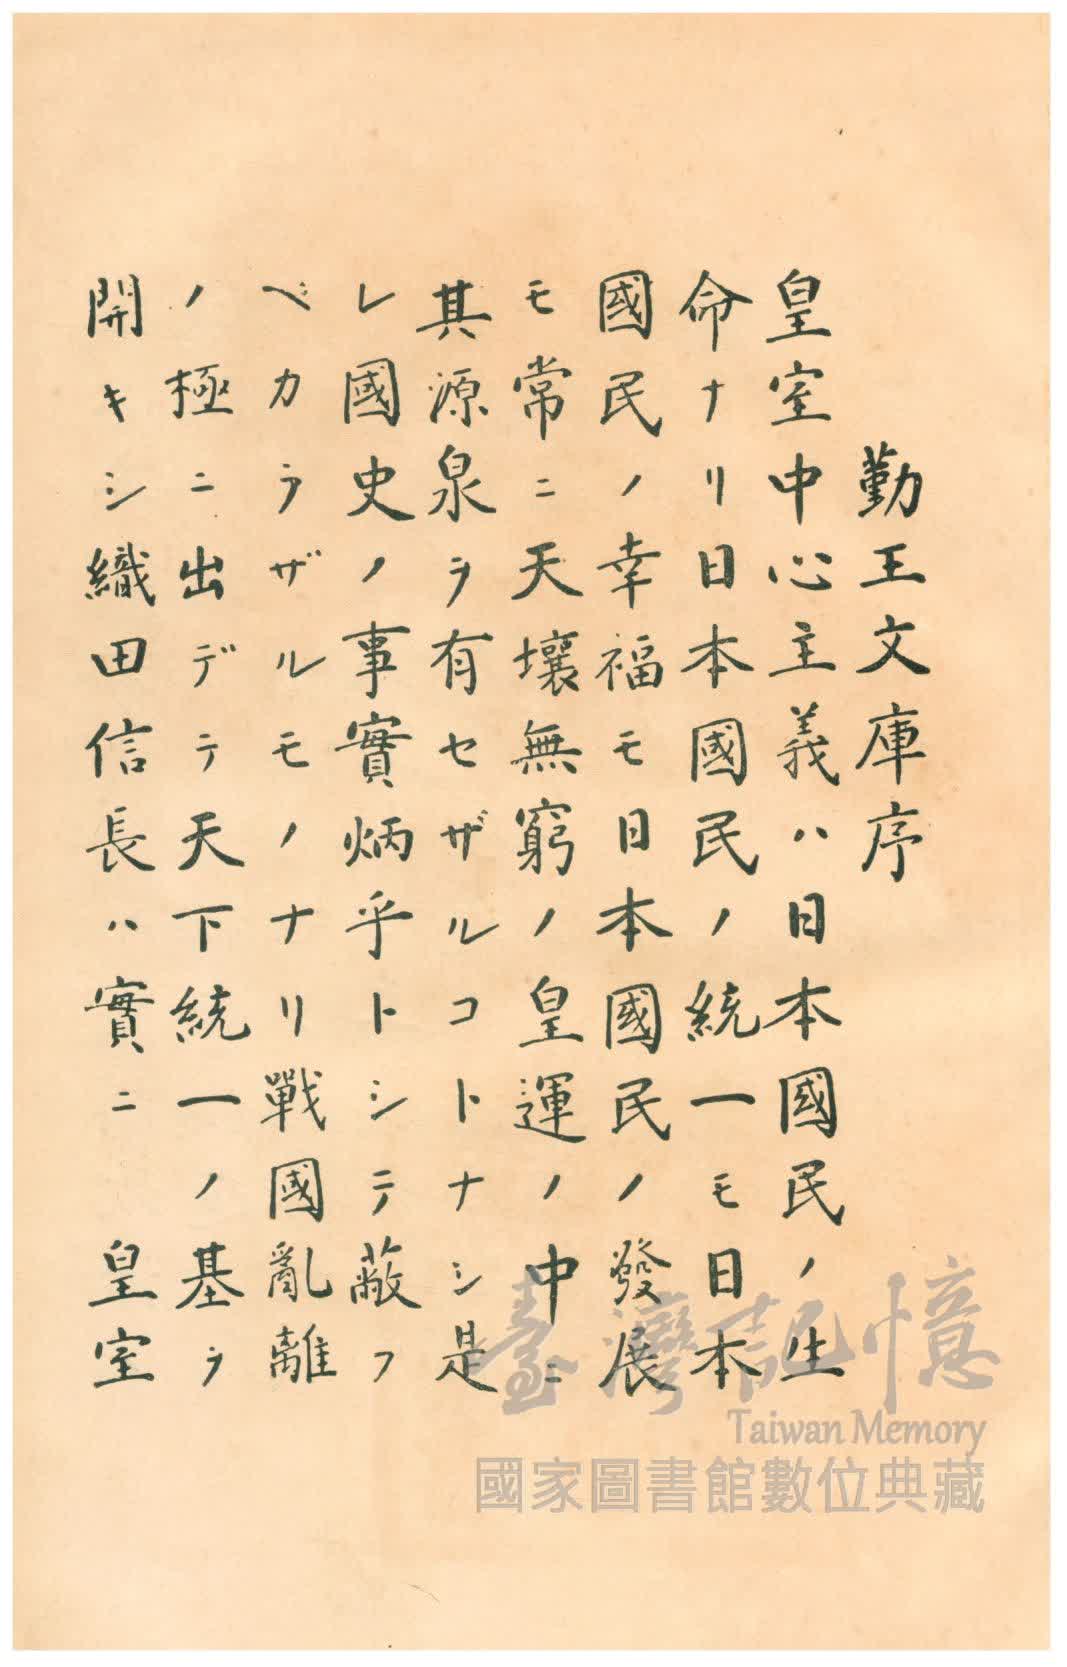 勤王文庫序
皇室中心主義ハ日本國民ノ生
命ナリ日本國民ノ統一モ日本
國民ノ幸福モ日本國民ノ發展
モ常ニ天壤無窮ノ皇運ノ中ニ
其源泉ヲ有セザルコトナシ是
レ國史ノ事實炳乎トシテ蔽フ
ベカラザルモノナリ戰國亂離
ノ極ニ出デテ天下統一ノ基ヲ
開キシ織田信長ハ實ニ皇室
臺灣記憶
Taiwan Memory
國家圖書館數位典藏